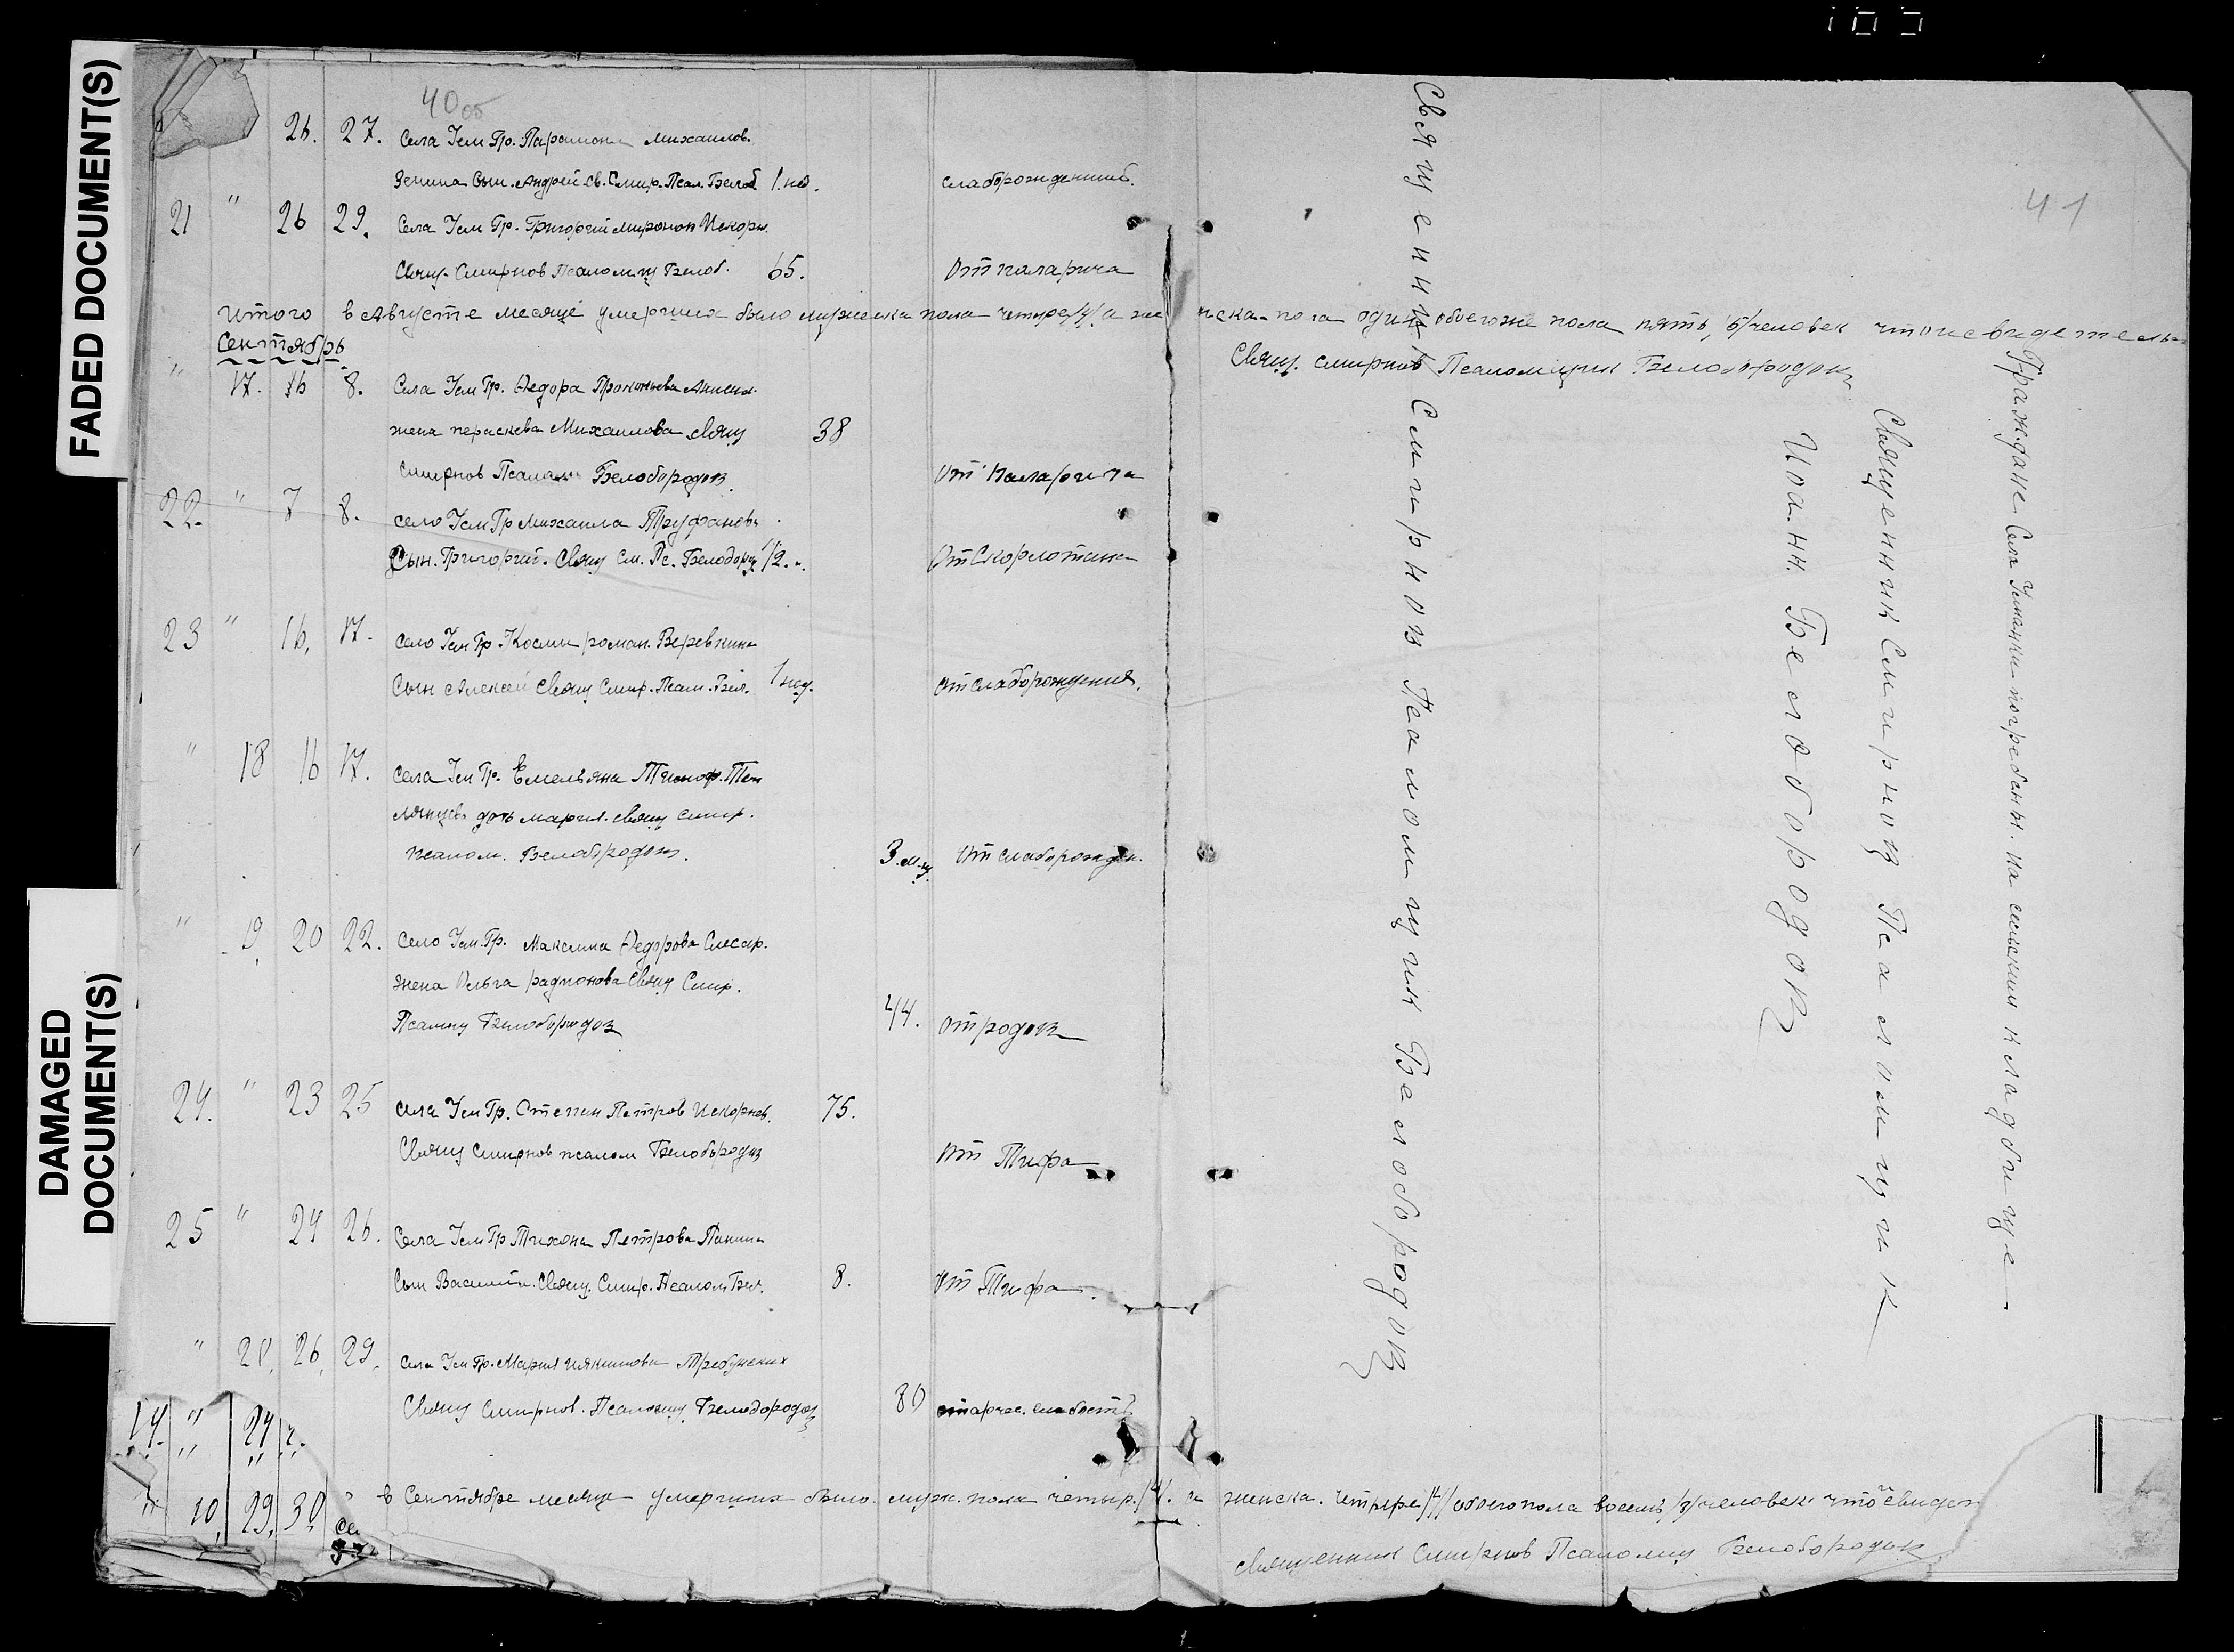 FADED DOCUMENT(S)
DAMAGED DOCUMENT(S)
40 об
41
26. 27. Села Усм Гр. Парамона Михаилов.
Зенина Сын. Андрей Св. Смир. Псал. Белоб 1 нед. слаборожденнности
21 " 26 29. Села Усм Гр. Григорий Миронов Искорн.
Свящ. Смирнов Псаломщ Белоб. 65. От паларича
Итого в Августе месяце умерших было мужеска пола четыре /4/ а женска пола один обоегоже пола пять /5/ человек что и свидетельс
Свящ. Смирнов Псаломщик Белобородов
Сентябрь
" 17. 16 8. Села Усм Гр. Федора Прокопьева
жена Пераскева Михаилова Свящ 38
Смирнов Псалом Белобородов. От паларича
22. " 7 8. село Усм Гр Михаила Труфанова
Сын. Григорий. Свящ См. Пс. Белобор 1/2. От Скорлотина
23 " 16, 17. село Усм Гр. Косми роман. Веревкина
Сын Алексей Свящ Смир. Псал. Бел. 1 нед. от слаборождения.
" 18 16 17. села Усм Гр. Емельяна Тимоф. Теп
лянцева дочь Мария. Свящ Смир.
псалом. Белобородов. 3. м-ц. От слаборожден.
" 19, 20 22. село Усм. Гр. Максима Федорова Слесар.
жена Ольга радионова Свящ Смир.
Псаломщ Белобородов 44. от родов
24. " 23 25 села Усм Гр. Степан Петров Искорнев. 75.
Свящ Смирнов псалом Белобородов От Тифа
25 " 24 26. Села Усм Гр Тихона Петрова Панина
Сын Василий. Свящ. Смир. Псалом Бел. 8. От Тифа.
" 20, 26, 29. села Усм Гр. Мария Иякимова Требунских
Свящ Смирнов. Псаломщ. Белобородов 80 старчес. слабости
14. " 24
" 10, 29, 30.
в Сентябре месяце умерших было. муж. пола четыр. /4/. а женска. четыре /4/ обоего пола восемь /8/ человек что и свидет
священник Смирнов Псаломщ Белобородов
Священник Смирнов Псаломщик Белобородов
Иоанн. Белобородов
Священник Смирнов Псаломщик
Граждане Села Усманки погребены. На сельскии кладбище